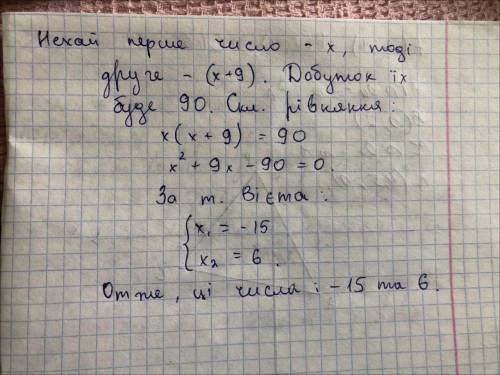 Нехай перше число - x, тоді
друге - (x+9). Добуток їх
буде 90. Скл. рівняння:
x(x+9) = 90
x² + 9x - 90 = 0.
За т. Вієта:
{ x₁ = -15
x₂ = 6.
Отже, ці числа: -15 та 6.